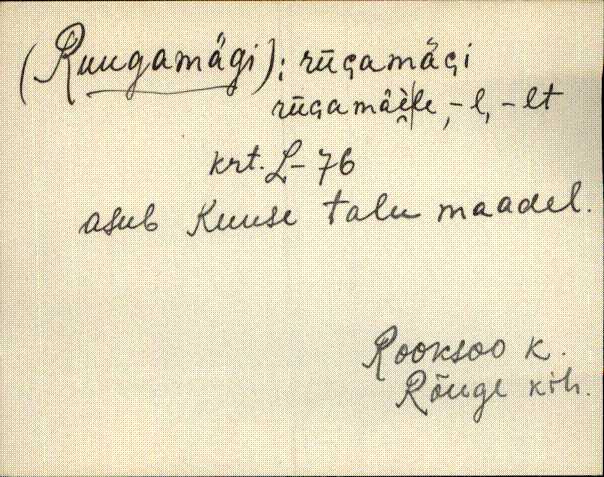 (Ruugamägi): rūgamägi
rūgamäe̬le, -l, -lt
krt. L-76
asub Kuuse talu maadel.
Rooksoo k.
Rõuge kih.